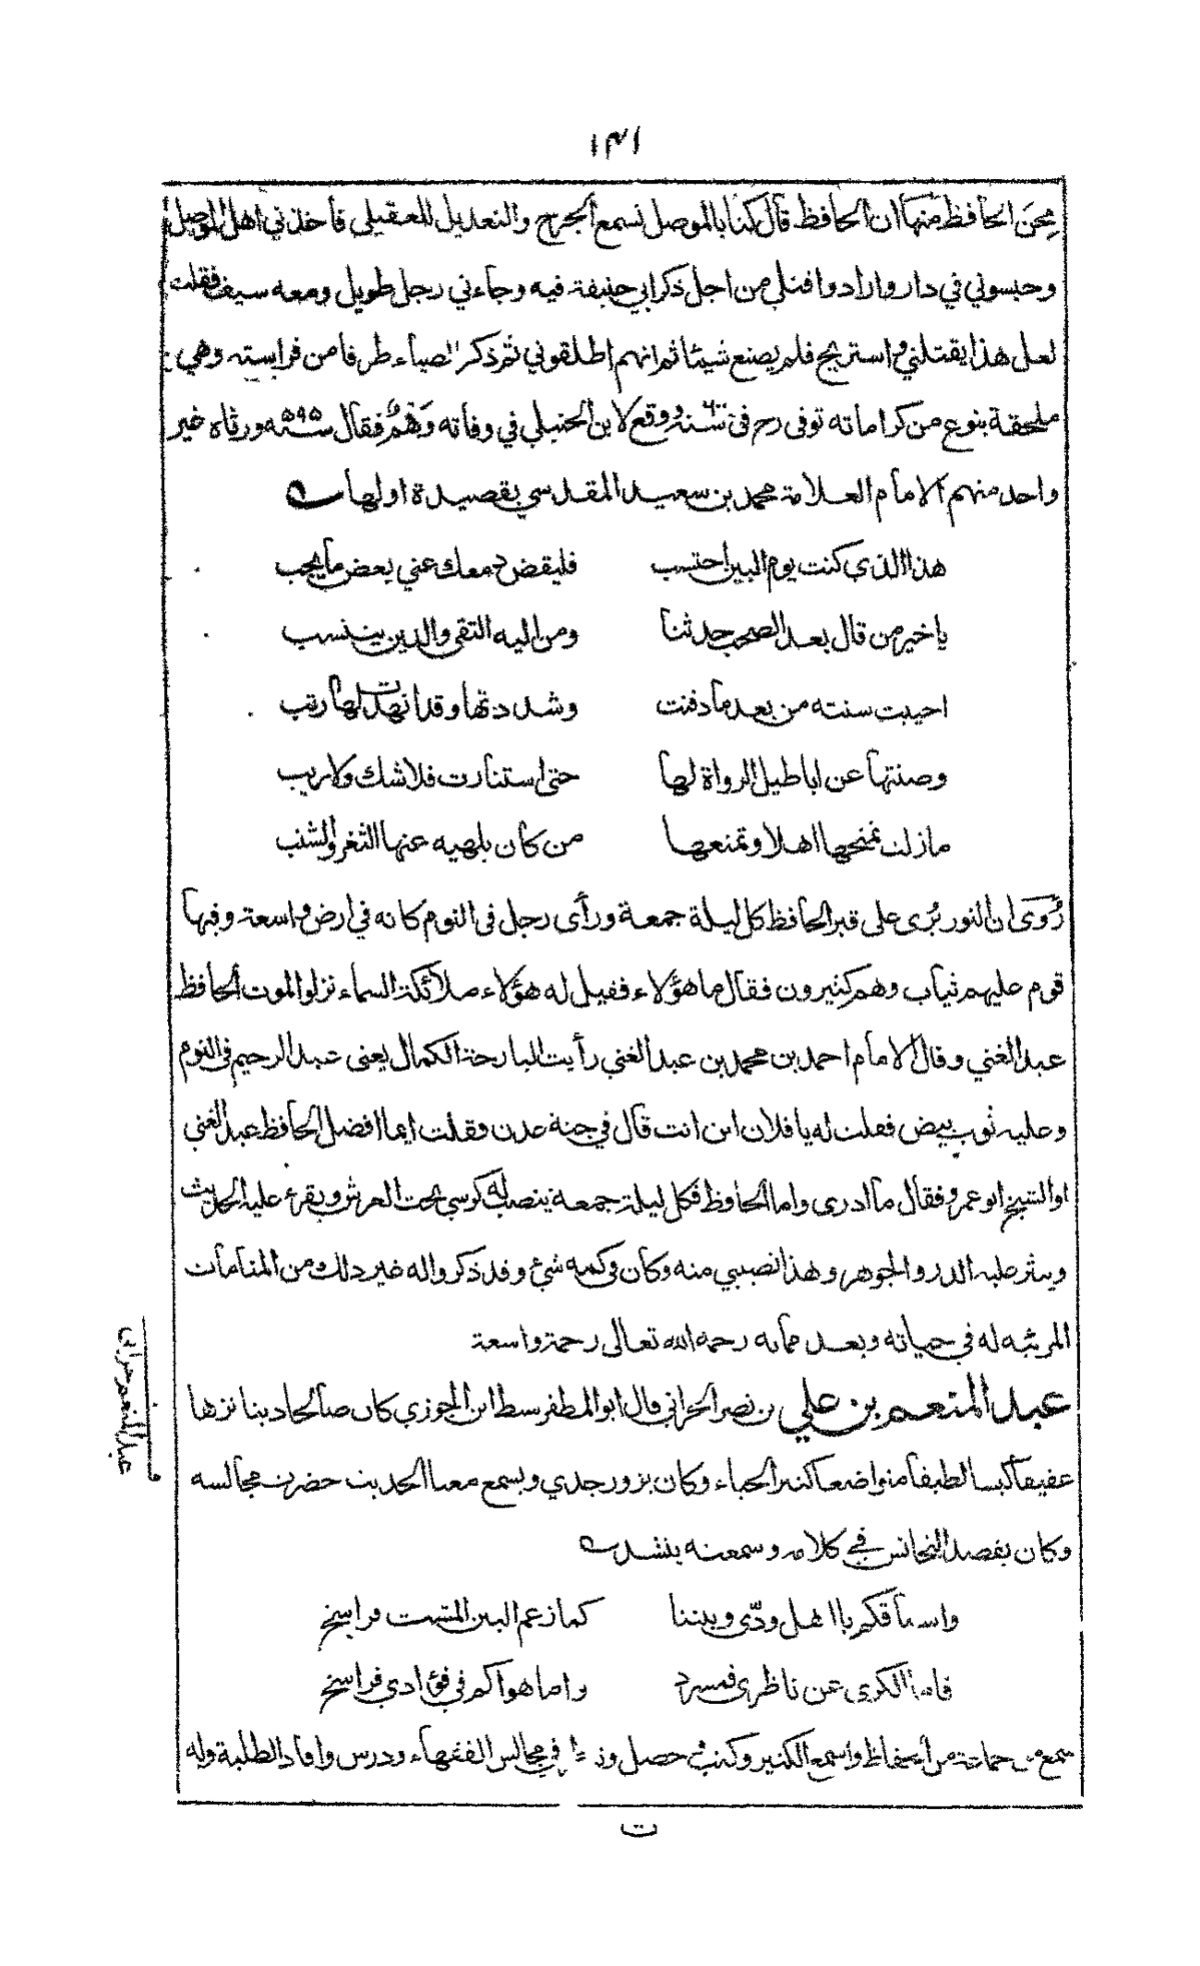 ١٣١
مِحَن الحافظ منها ان الحافظ قال كنا بالموصل نسمع الجرح والتعديل للعقيلي فأخذني اهل الموصل
وحبسوني في دار وارادوا قتلي من اجل ذكر ابي حنيفة فيه وجاءني رجل طويل ومعه سيف فقلت
لعل هذا يقتلني واستريح فلم يصنع شيئا ثم انهم اطلقوني ثم ذكر الضياء طرفا من فراسته وهي
ملحقة بنوع من كراماته توفى رح فى سنة ٦٠٠ ووقع لابن الحنبلي في وفاته وَهْمٌ فقال سنة ٥٩٥ ورثاه غير
واحد منهم الامام العلامة محمد بن سعيد المقدسي بقصيدة اولها
هذا الذي كنت يوم البين احتسب فليقض دمعك عني بعض ما يجب
يا خير من قال بعد الصحب حدثنا ومن اليه التقى والدين ينتسب
احييت سنته من بعد ما دفنت وشددتها وقد انهدت لها رتب
وصنتها عن اباطيل الرواة لها حتى استنارت فلا شك ولا ريب
ما زلت تمنحها اهلا وتمنعها من كان يلهيه عنها الثغر والشنب
رُوَى ان النور يُرى على قبر الحافظ كل ليلة جمعة ورأى رجل فى النوم كانه في ارض واسعة وفيها
قوم عليهم ثياب وهم كثيرون فقال ما هؤلاء فقيل له هؤلاء ملائكة السماء نزلوا لموت الحافظ
عبد الغني وقال الامام احمد بن محمد بن عبد الغني رأيت البارحة الكمال يعنى عبد الرحيم فى النوم
وعليه ثوب بيض فقلت له يا فلان اين انت قال في جنة عدن وقلت ايما افضل الحافظ عبد الغني
او الشيخ ابو عمرو فقال ما ادرى واما الحافظ فكل ليلة جمعة ينصب له كرسي تحت العرش ويقرء عليه الحديث
وينثر عليه الدر والجوهر وهذا نصيبي منه وكان في كمه شئ وقد ذكروا له غير ذلك من المنامات
المرئيه له في حياته وبعد مماته رحمه الله تعالى رحمة واسعة
عبد المنعم بن علي بن نصر الحراني قال ابو المظفر سبط ابن الجوزي كان صالحا دينا نزها
عفيفا كيسا لطيفا متواضعا كثير الحياء وكان يزور جدي ويسمع معنا الحديث حضرت مجالسه
وكان يقصد التجانس في كلامه وسمعته ينشد
واشتاقكم يا اهل ودّى وبيننا كما زعم البين المشتت فراسخ
فاما الكرى عن ناظرى فمشرد واما هواكم في فؤادي فراسخ
سمع من جماعة من الحفاظ واسمع الكثير وكتب حصل في مجالس الفقهاء ودرس وافاد الطلبة وله
عبد المنعم حرانى
ت